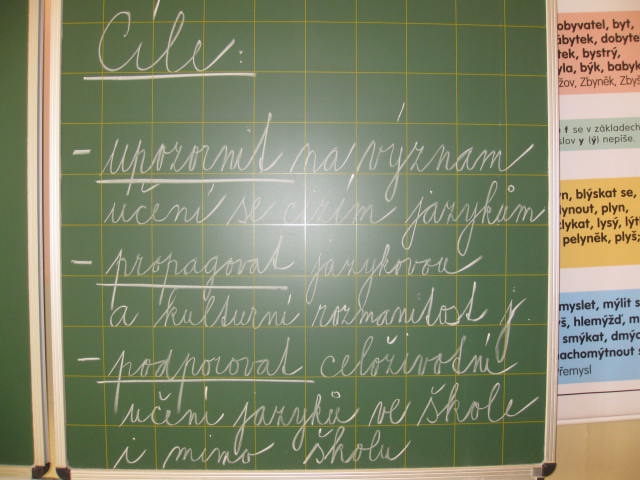 Cíle:
- upozornit na význam
učení se cizím jazykům
- propagovat jazykovou
a kulturní rozmanitost j.
- podporovat celoživotní
učení jazyků ve škole
i mimo školu
obyvatel, byt,
dobyte
bystrý,
býk, babyk
Zbyněk, Zbyš
f se v základech
slov y (ý) nepíše.
blýskat se,
plyn,
lysý, lýt
pelyněk, plyš;
mýlit s
hlemýžď, m
smýkat, dmýc